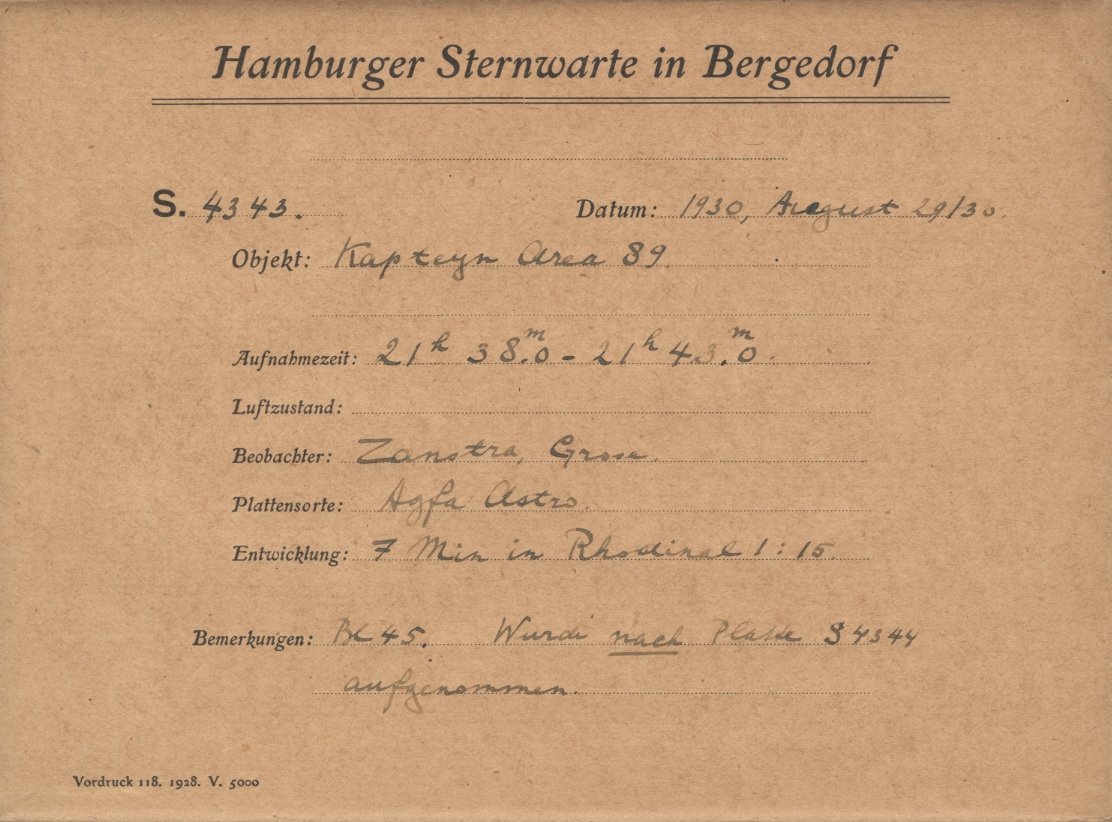 Hamburger Sternwarte in Bergedorf
S. 4343. Datum: 1930, August 29/30.
Objekt: Kapteyn Area 89.
Aufnahmezeit: 21h 38m.0 - 21h 43m.0.
Luftzustand:
Beobachter: Zanstra,
Plattensorte: Agfa Astro.
Entwicklung: 7 Min in Rhodinal 1:15.
Bemerkungen: Bl 45. Wurde nach Platte S 4344
aufgenommen.
Vordruck 118. 1928. V. 5000